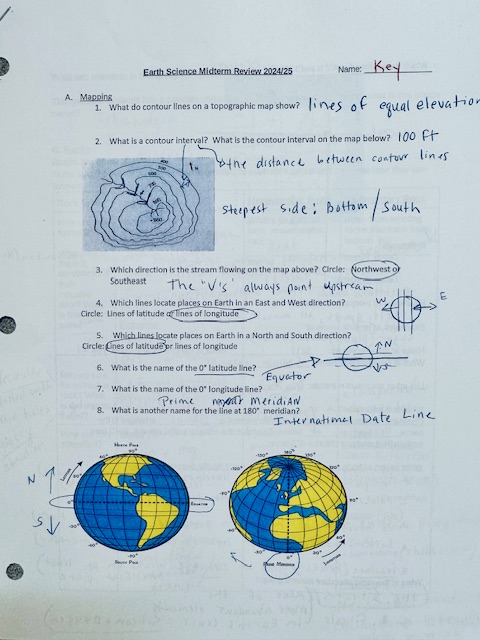 Earth Science Midterm Review 2024/25 Name: Key
A. Mapping
1. What do contour lines on a topographic map show? lines of equal elevation
2. What is a contour interval? What is the contour interval on the map below? 100 ft
the distance between contour lines
400
500
600
Steepest side: Bottom/South
3. Which direction is the stream flowing on the map above? Circle: Northwest or
Southeast The "V's" always point upstream
4. Which lines locate places on Earth in an East and West direction?
W E
Circle: Lines of latitude or lines of longitude
5. Which lines locate places on Earth in a North and South direction?
Circle: Lines of latitude or lines of longitude
N
S
6. What is the name of the 0° latitude line? Equator
7. What is the name of the 0° longitude line?
Prime MERIDIAN
8. What is another name for the line at 180° meridian?
International Date Line
North Pole
90°
N
S
Latitude
0°
Equator
South Pole
180°
Prime Meridian
Longitude